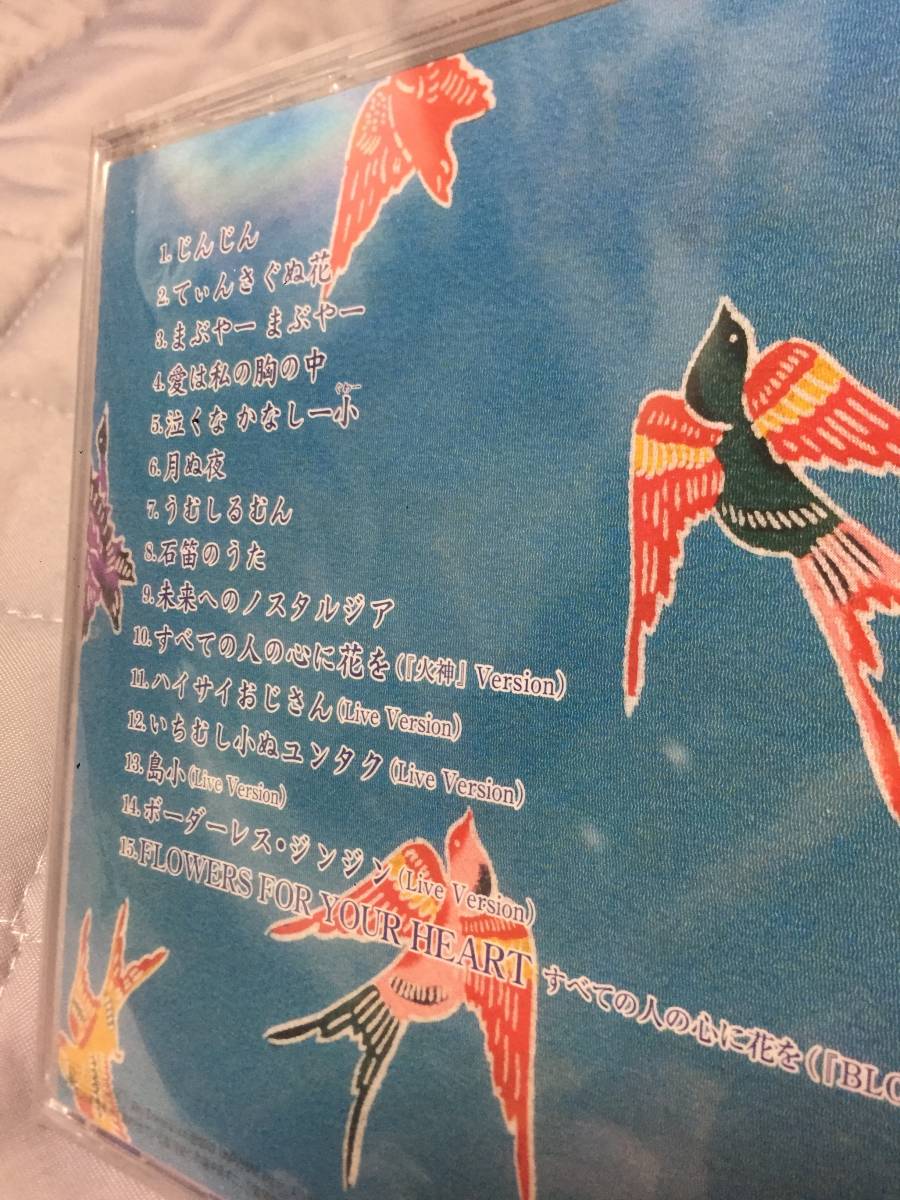 1.じんじん
2.てぃんさぐぬ花
3.まぶやー まぶやー
4.愛は私の胸の中
ぐゎー
5.泣くな かなしー小
6.月ぬ夜
7.うむしるむん
8.石笛のうた
9.未来へのノスタルジア
10.すべての人の心に花を(『火神』Version)
11.ハイサイおじさん(Live Version)
12.いちむし小ぬユンタク(Live Version)
13.島小(Live Version)
14.ボーダーレス・ジンジン(Live Version)
15.FLOWERS FOR YOUR HEART すべての人の心に花を(『BLO